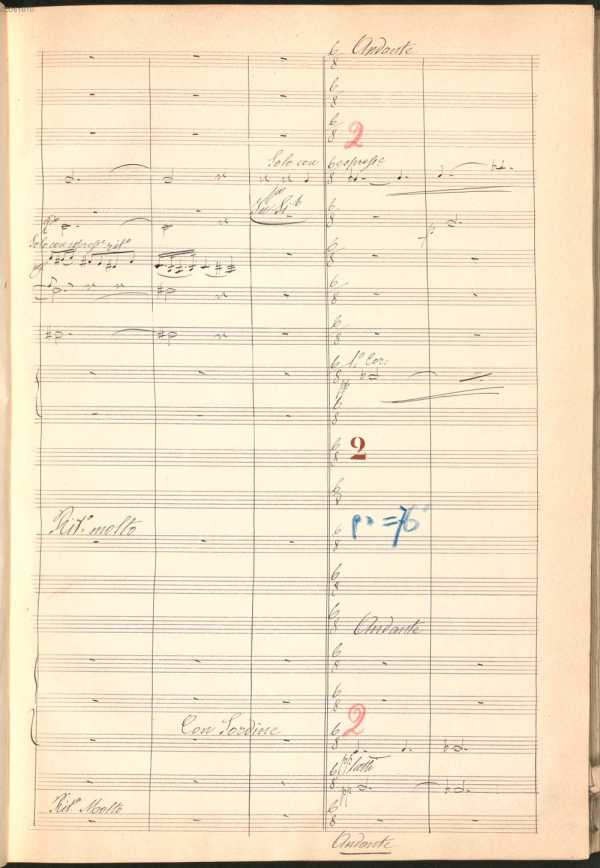 Andante
6
8
2
Solo con espress:
Solo con espress:
1º Cor:
pp
2
Rit.º molto
= 76
Andante
2
Con Sordine
pp
Rit.º Molto
Andante